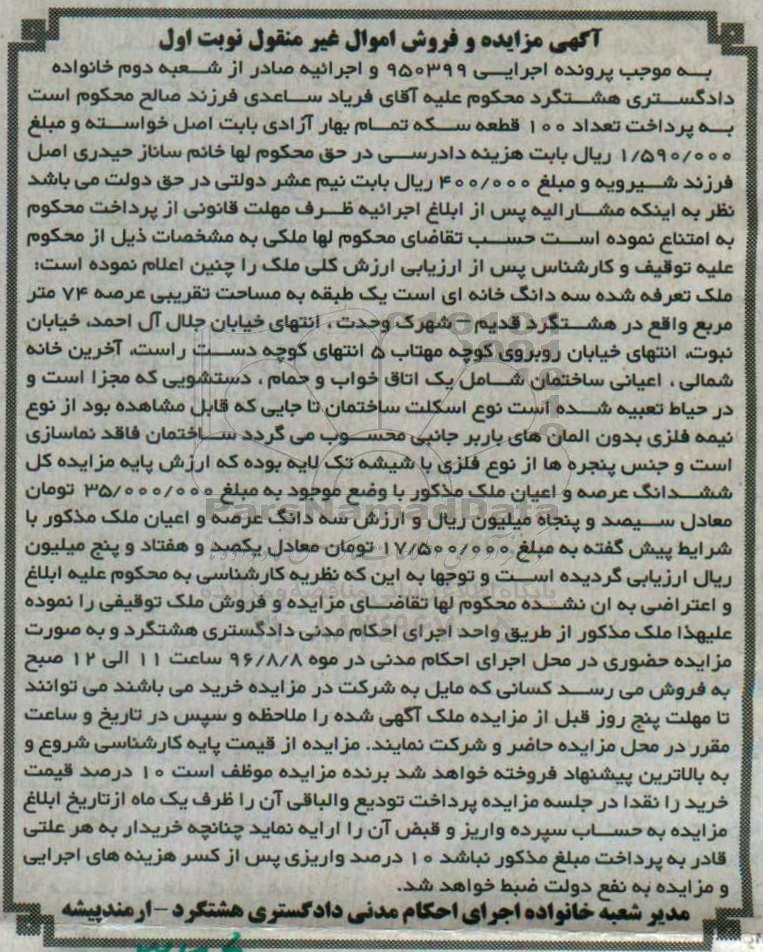 آگهی مزایده و فروش اموال غیر منقول نوبت اول
به موجب پرونده اجرایی ۹۵۰۳۹۹ و اجرائیه صادر از شعبه دوم خانواده
دادگستری هشتگرد محکوم علیه آقای فریاد ساعدی فرزند صالح محکوم است
به پرداخت تعداد ۱۰۰ قطعه سکه تمام بهار آزادی بابت اصل خواسته و مبلغ
۱/۵۹۰/۰۰۰ ریال بابت هزینه دادرسی در حق محکوم لها خانم ساناز حیدری اصل
فرزند شیرویه و مبلغ ۴۰۰/۰۰۰ ریال بابت نیم عشر دولتی در حق دولت می باشد
نظر به اینکه مشارالیه پس از ابلاغ اجرائیه ظرف مهلت قانونی از پرداخت محکوم
به امتناع نموده است حسب تقاضای محکوم لها ملکی به مشخصات ذیل از محکوم
علیه توقیف و کارشناس پس از ارزیابی ارزش کلی ملک را چنین اعلام نموده است:
ملک تعرفه شده سه دانگ خانه ای است یک طبقه به مساحت تقریبی عرصه ۷۴ متر
مربع واقع در هشتگرد قدیم - شهرک وحدت ، انتهای خیابان جلال آل احمد، خیابان
نبوت، انتهای خیابان روبروی کوچه مهتاب ۵ انتهای کوچه دست راست، آخرین خانه
شمالی ، اعیانی ساختمان شامل یک اتاق خواب و حمام ، دستشویی که مجزا است و
در حیاط تعبیه شده است نوع اسکلت ساختمان تا جایی که قابل مشاهده بود از نوع
نیمه فلزی بدون المان های باربر جانبی محسوب می گردد ساختمان فاقد نماسازی
است و جنس پنجره ها از نوع فلزی با شیشه تک لایه بوده که ارزش پایه مزایده کل
ششدانگ عرصه و اعیان ملک مذکور با وضع موجود به مبلغ ۳۵/۰۰۰/۰۰۰ تومان
معادل سیصد و پنجاه میلیون ریال و ارزش سه دانگ عرصه و اعیان ملک مذکور با
شرایط پیش گفته به مبلغ ۱۷/۵۰۰/۰۰۰ تومان معادل یکصد و هفتاد و پنج میلیون
ریال ارزیابی گردیده است و توجها به این که نظریه کارشناسی به محکوم علیه ابلاغ
و اعتراضی به ان نشده محکوم لها تقاضای مزایده و فروش ملک توقیفی را نموده
علیهذا ملک مذکور از طریق واحد اجرای احکام مدنی دادگستری هشتگرد و به صورت
مزایده حضوری در محل اجرای احکام مدنی در موه ۹۶/۸/۸ ساعت ۱۱ الی ۱۲ صبح
به فروش می رسد کسانی که مایل به شرکت در مزایده خرید می باشند می توانند
تا مهلت پنج روز قبل از مزایده ملک آگهی شده را ملاحظه و سپس در تاریخ و ساعت
مقرر در محل مزایده حاضر و شرکت نمایند. مزایده از قیمت پایه کارشناسی شروع و
به بالاترین پیشنهاد فروخته خواهد شد برنده مزایده موظف است ۱۰ درصد قیمت
خرید را نقدا در جلسه مزایده پرداخت تودیع والباقی آن را ظرف یک ماه ازتاریخ ابلاغ
مزایده به حساب سپرده واریز و قبض آن را ارایه نماید چنانچه خریدار به هر علتی
قادر به پرداخت مبلغ مذکور نباشد ۱۰ درصد واریزی پس از کسر هزینه های اجرایی
و مزایده به نفع دولت ضبط خواهد شد.
مدیر شعبه خانواده اجرای احکام مدنی دادگستری هشتگرد – ارمندپیشه
ParsNamadData